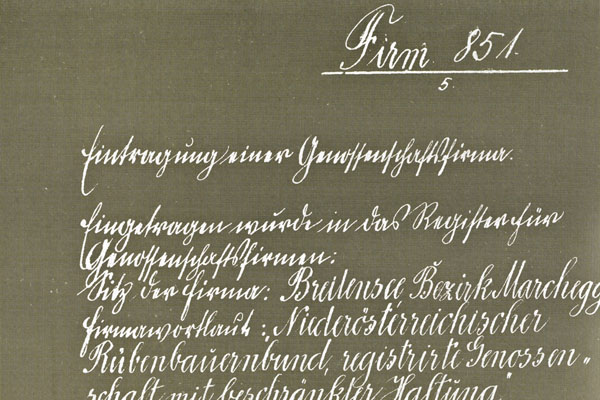 Firm. 851.
5.
Eintragung einer Genossenschaftsfirma.
Eingetragen wurde in das Register für
Genossenschaftsfirmen:
Sitz der Firma: Breitensee Bezirk Marchegg
Firmawortlaut: „Niederösterreichischer
Rübenbauernbund, registrirte Genossen„
schaft mit beschränkter Haftung"